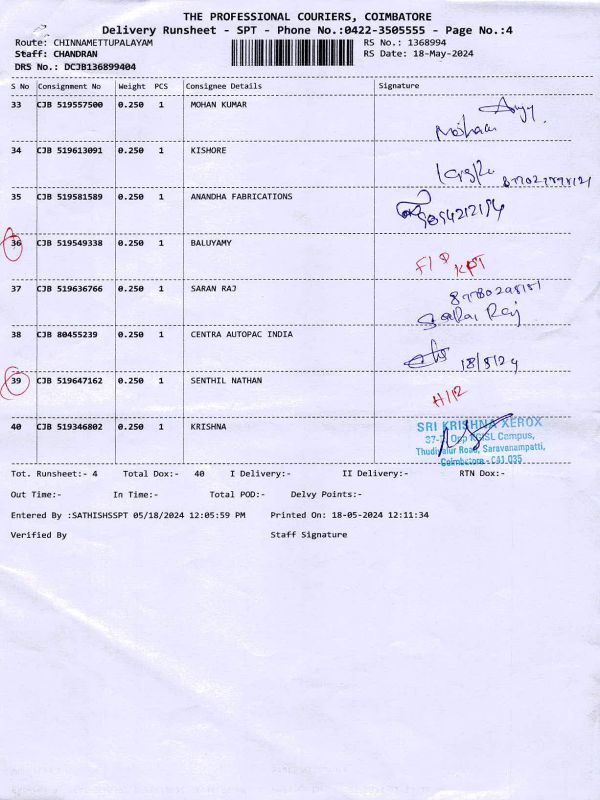 THE PROFESSIONAL COURIERS, COIMBATORE
Delivery Runsheet - SPT - Phone No.:0422-3505555 - Page No.:4
Route: CHINNAMETTUPALAYAM RS No.: 1368994
Staff: CHANDRAN RS Date: 18-May-2024
DRS No.: DCJB136899404
S No Consignment No Weight PCS Consignee Details Signature
33 CJB 519557500 0.250 1 MOHAN KUMAR
Mohan
34 CJB 519613091 0.250 1 KISHORE
35 CJB 519581589 0.250 1 ANANDHA FABRICATIONS
36 CJB 519549338 0.250 1 BALUYAMY
KPT
37 CJB 519636766 0.250 1 SARAN RAJ
Raj
38 CJB 80455239 0.250 1 CENTRA AUTOPAC INDIA
18/5/24
39 CJB 519647162 0.250 1 SENTHIL NATHAN
40 CJB 519346802 0.250 1 KRISHNA
SRI KRISHNA XEROX
Opp KGISL Campus,
Thudiyalur Road, Saravanampatti,
Coimbatore - 641 035
Tot. Runsheet:- 4 Total Dox:- 40 I Delivery:- II Delivery:- RTN Dox:-
Out Time:- In Time:- Total POD:- Delvy Points:-
Entered By :SATHISHSSPT 05/18/2024 12:05:59 PM Printed On: 18-05-2024 12:11:34
Verified By Staff Signature